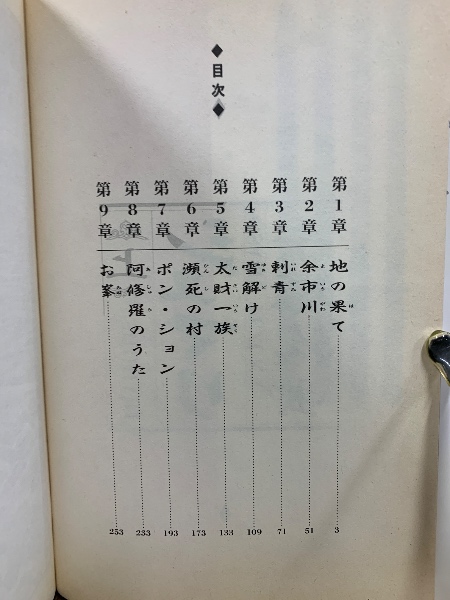 ◆目次◆
第1章 地の果て 3
第2章 余市川 51
第3章 刺青 71
第4章 雪解け 109
第5章 太財一族 133
第6章 瀕死の村 173
第7章 ポン・ション 193
第8章 阿修羅のうた 233
第9章 お峯 253